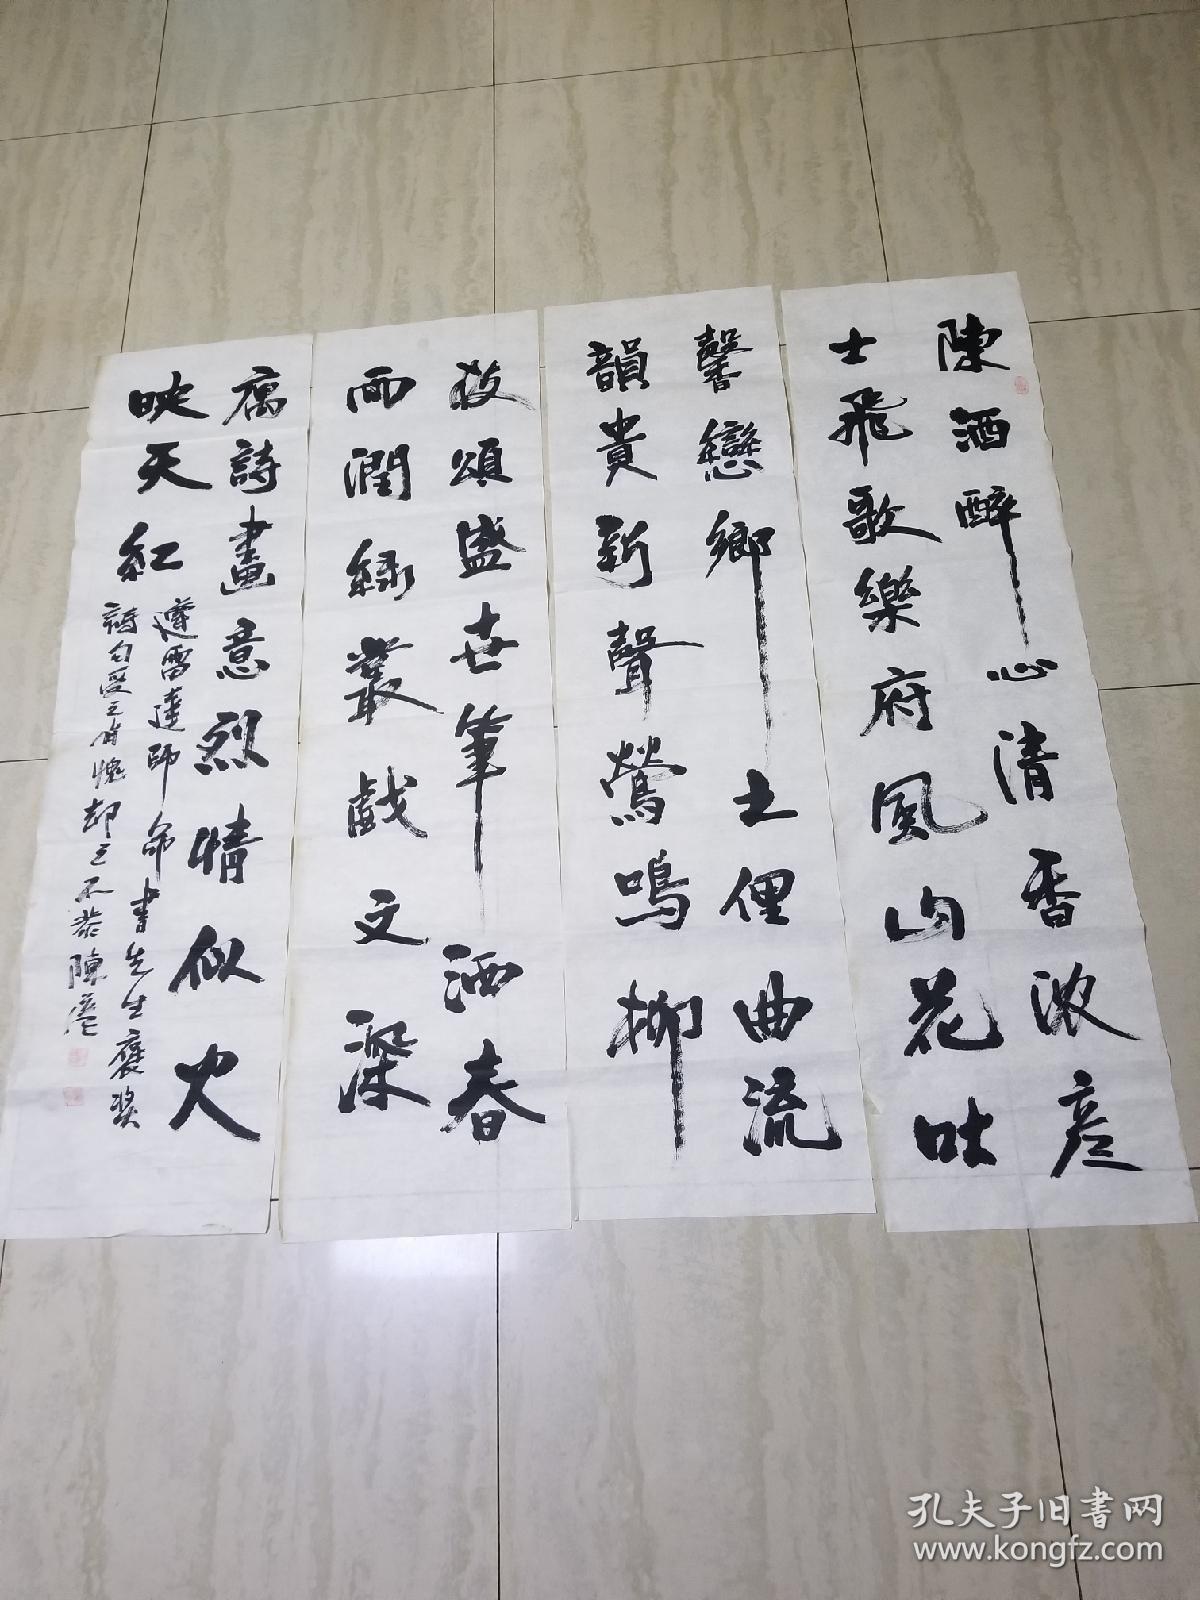 陳酒醉心清香浓彦
士飛歌樂府風山花吐
馨戀鄉土俚曲流
韻貴新聲鶯鳴柳
枝頌盛世筆洒春
雨潤綠叢戲文深
寓詩畫意烈情似火
映天紅
遵雷達師命書先生褒奖
詩句受之有愧却之不恭陳彦
孔夫子旧書网
www.kongfz.com